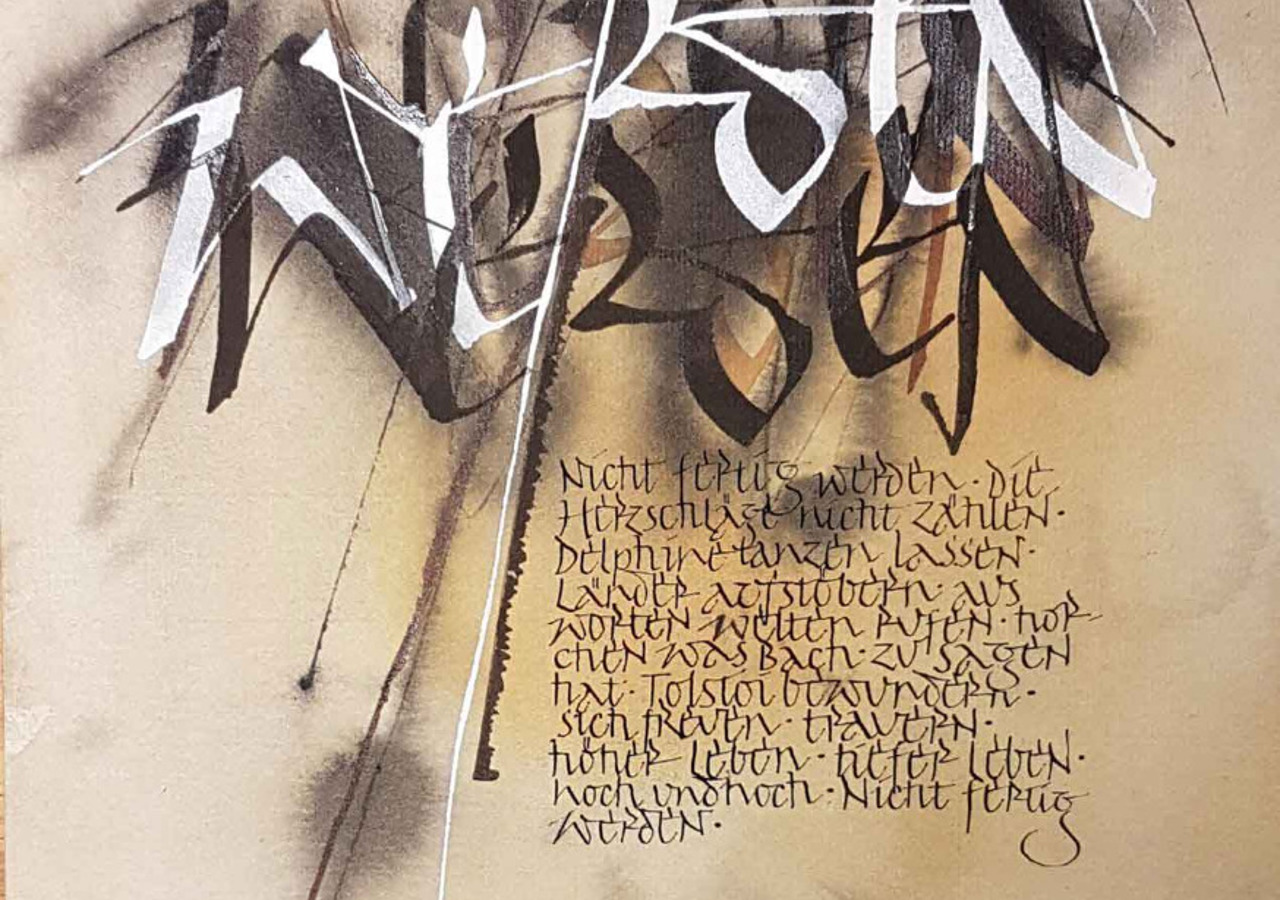 WERDEN
WERDEN
Nicht fertig werden · Die
Herzschläge nicht zählen ·
Delphine tanzen lassen ·
Länder aufstöbern · aus
Worten Welten rufen · hor-
chen was Bach · zu sagen
hat · Tolstoi bewundern ·
sich freuen · trauern ·
höher leben · tiefer leben ·
noch und noch · Nicht fertig
werden ·